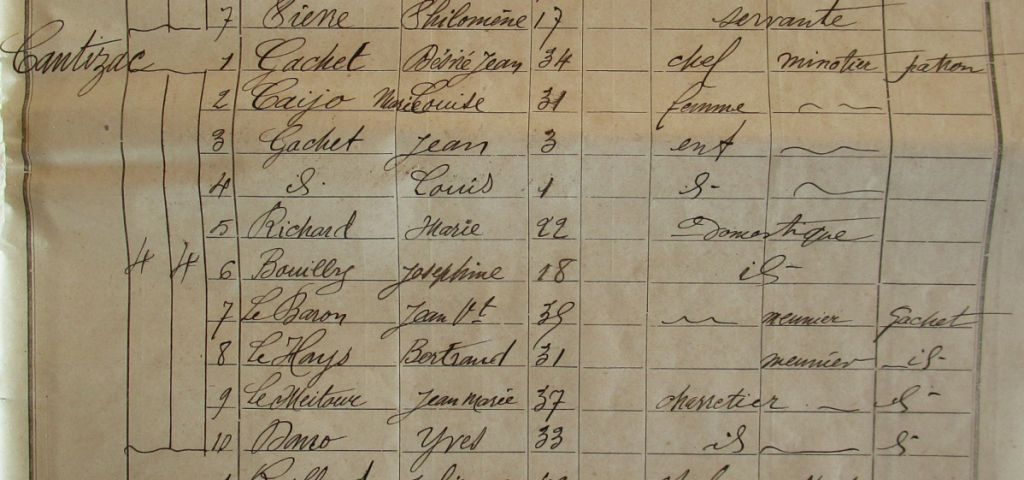 7 Pierre Philomène 17 servante
Cantizac 1 Gachet Désiré Jean 34 chef minotier patron
2 Caijo Marie Louise 31 femme
3 Gachet Jean 3 enf
4 id Louis 1 id
5 Richard Marie 22 Domestique
6 Bouilly Joséphine 18 id
4 4
7 Le Baron Jean Vt meunier Gachet
8 Le Hays Bertrand 31 meunier id
9 Le Meitour Jean Marie 37 charretier id
10 Dano Yves 33 id id